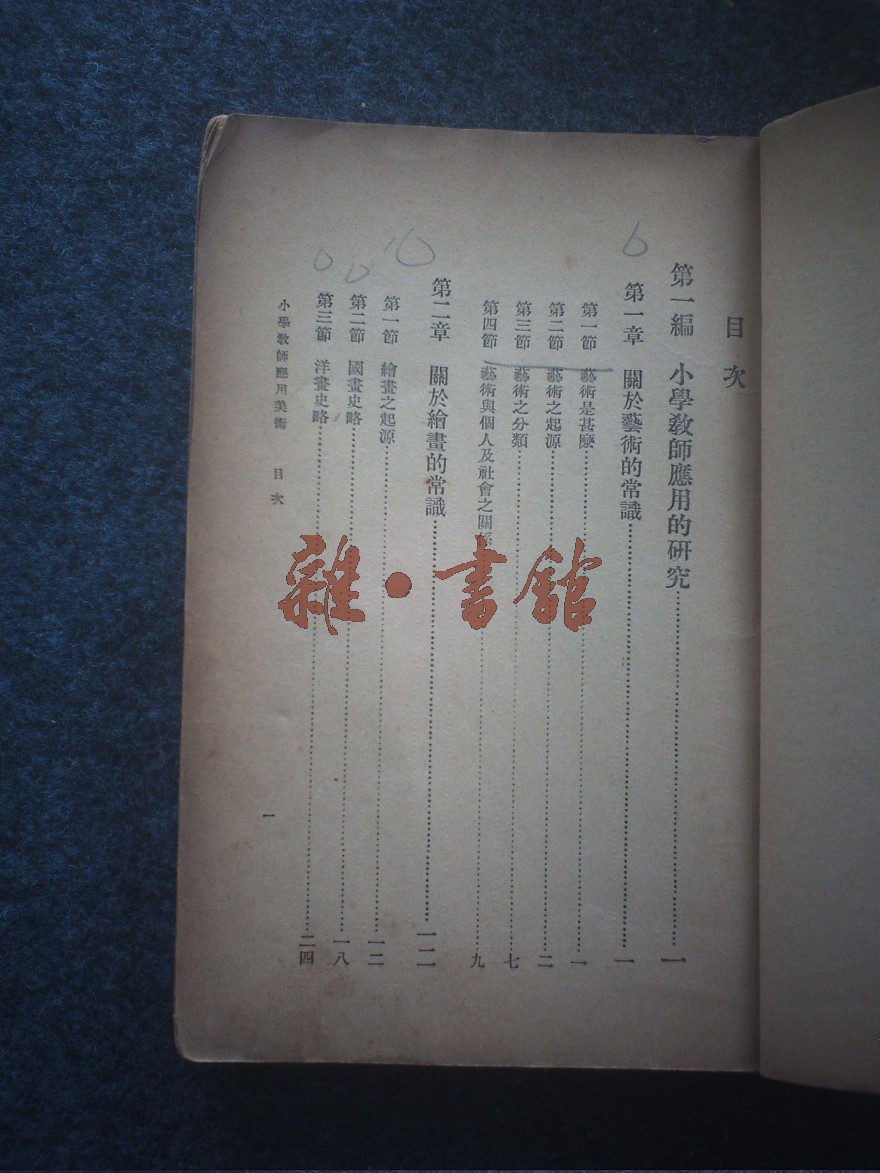 目次
第一編 小學敎師應用的硏究……一
第一章 關於藝術的常識……一
第一節 藝術是甚麼……一
第二節 藝術之起源……二
第三節 藝術之分類……七
第四節 藝術與個人及社會之關係……九
第二章 關於繪畫的常識……一二
第一節 繪畫之起源……一二
第二節 國畫史略……一八
第三節 洋畫史略……二四
小學敎師應用美術 目次
一
雜·書館